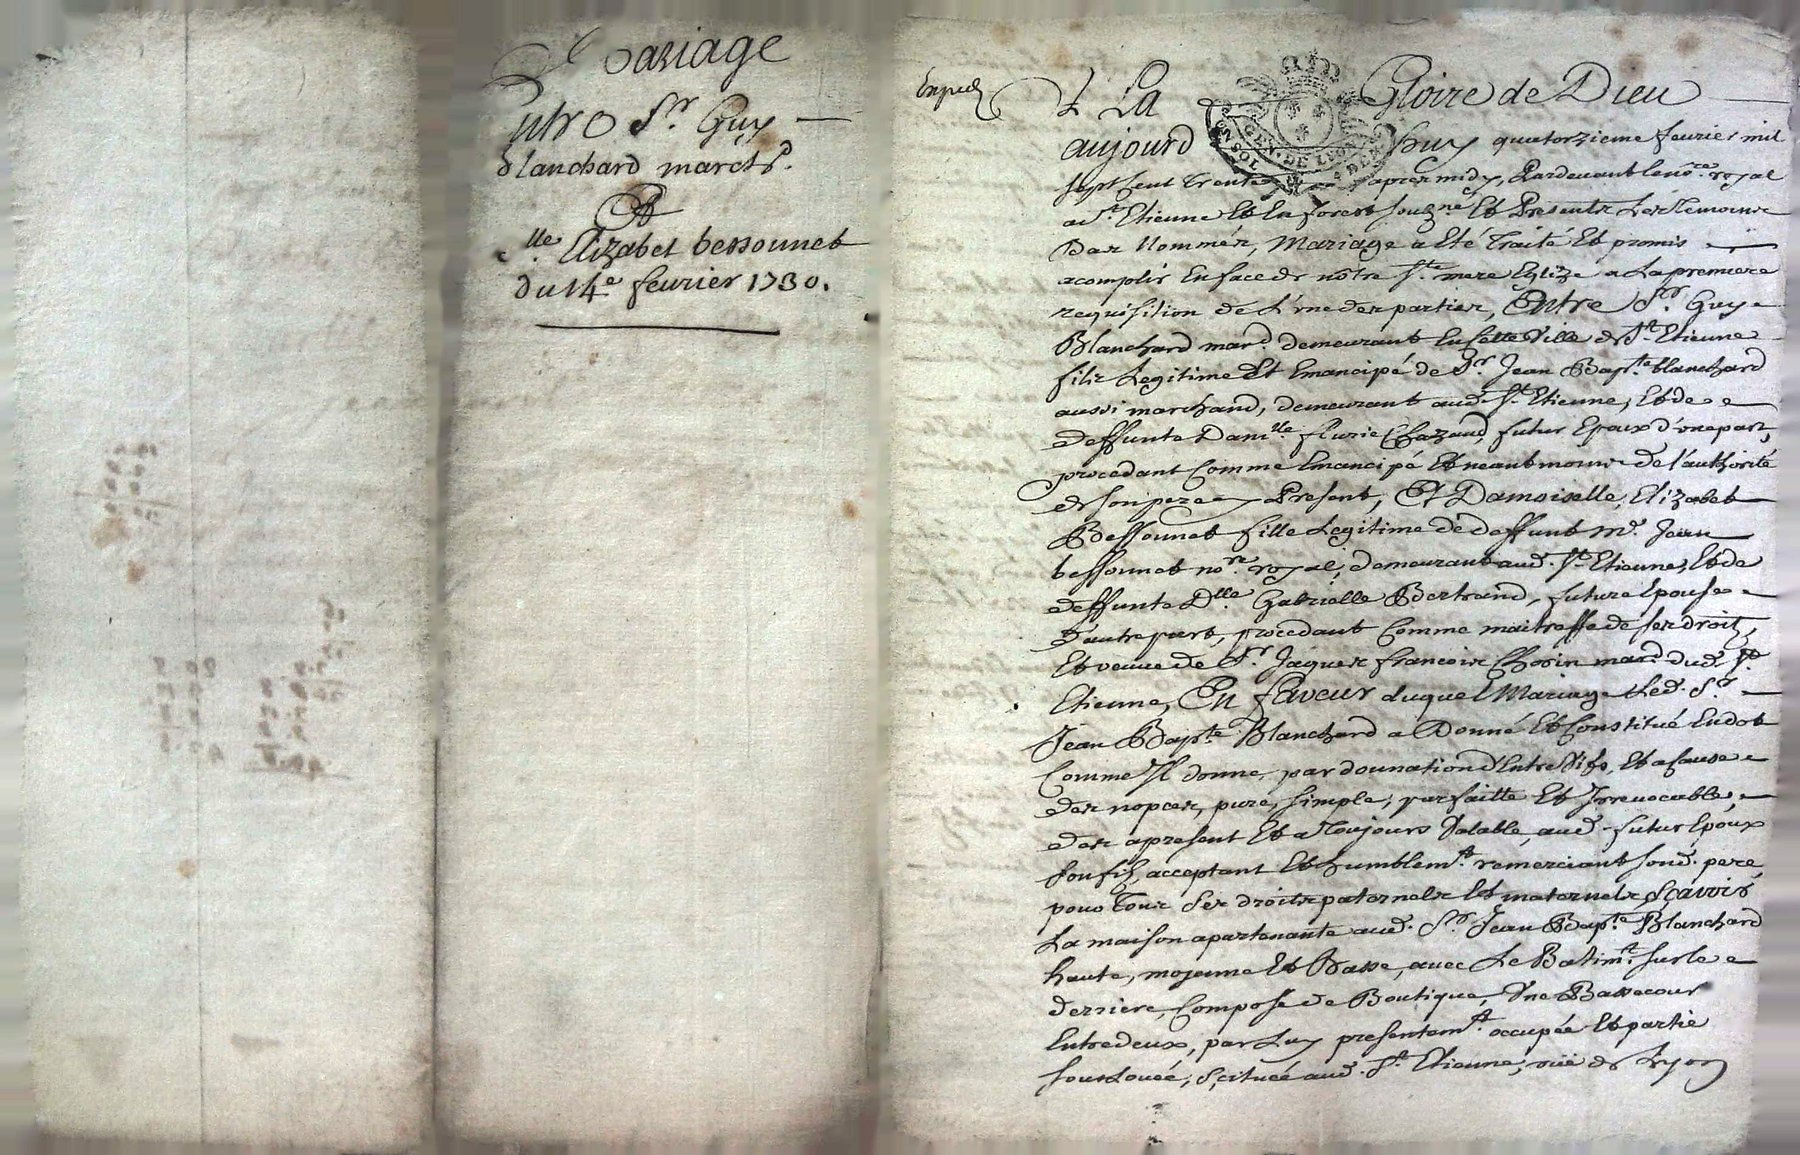 Mariage
Entre Sr. Guy
Blanchard marchd.
Et
lle. Elizabet bessonnet
du 14e. feurier 1730.
Exped.
A La Gloire de Dieu
aujourd huy quatorzieme feurier mil
sept Cent trente apres midy, Pardeuant le nore. royal
a St. Etienne Et En forest sougné. Et Presents Les temoins
bas Nommés, Mariage a Eté traité Et promis
acomplir En face de nôtre Ste. mere Eglize a La premiere
requisition de L'une des parties, Entre Sr. Guy
Blanchard mard. demeurant En Cette Ville de St. Etienne
fils Legitime Et Emancipé de Sr. Jean Bapte. blanchard
aussi marchand, demeurant aud. St. Etienne, Et de
deffunte Damlle. flurie Chazaud, futur Epoux d'une part,
procedant Comme Emancipé Et neantmoins de l'authorité
de son pere Present, Et Damoiselle, Elizabet
Bessonnet fille Legitime de deffunt Me. Jean
bessonnet nore. royal, demeurant aud. St. Etienne, Et de
deffunte Dlle. Gabrielle Bertrand, future Epouse
d'autre part, procedant Comme maitresse de ses droits,
Et veuue de Sr. Jaques francois Chorin mard. dud. St.
Etienne, En faveur duquel Mariage Led. Sr.
Jean Bapte. Blanchard a Donné Et Constitué En dot
Comme Il donne, par donnation d'Entre Vifs, Et a Cause
des nopces, pure, simple, parfaitte Et Irreuocable,
des apresent Et a Toujours Valable, aud. futur Epoux
son fils, acceptant Et humblemt. remerciant sond. pere,
pour tous Ses droits paternels Et maternels, Sçavoir
La maison apartenante aud. Sr. Jean Bapte. Blanchard
haute, mojenne Et Basse, auec Le Batimt. sur le
derriere, Composé de Boutique, Vne Bassecour
Entredeux, par Luy presentemt. occupée Et partie
souslouée, Scituée aud. St. Etienne, ruë de Lyon